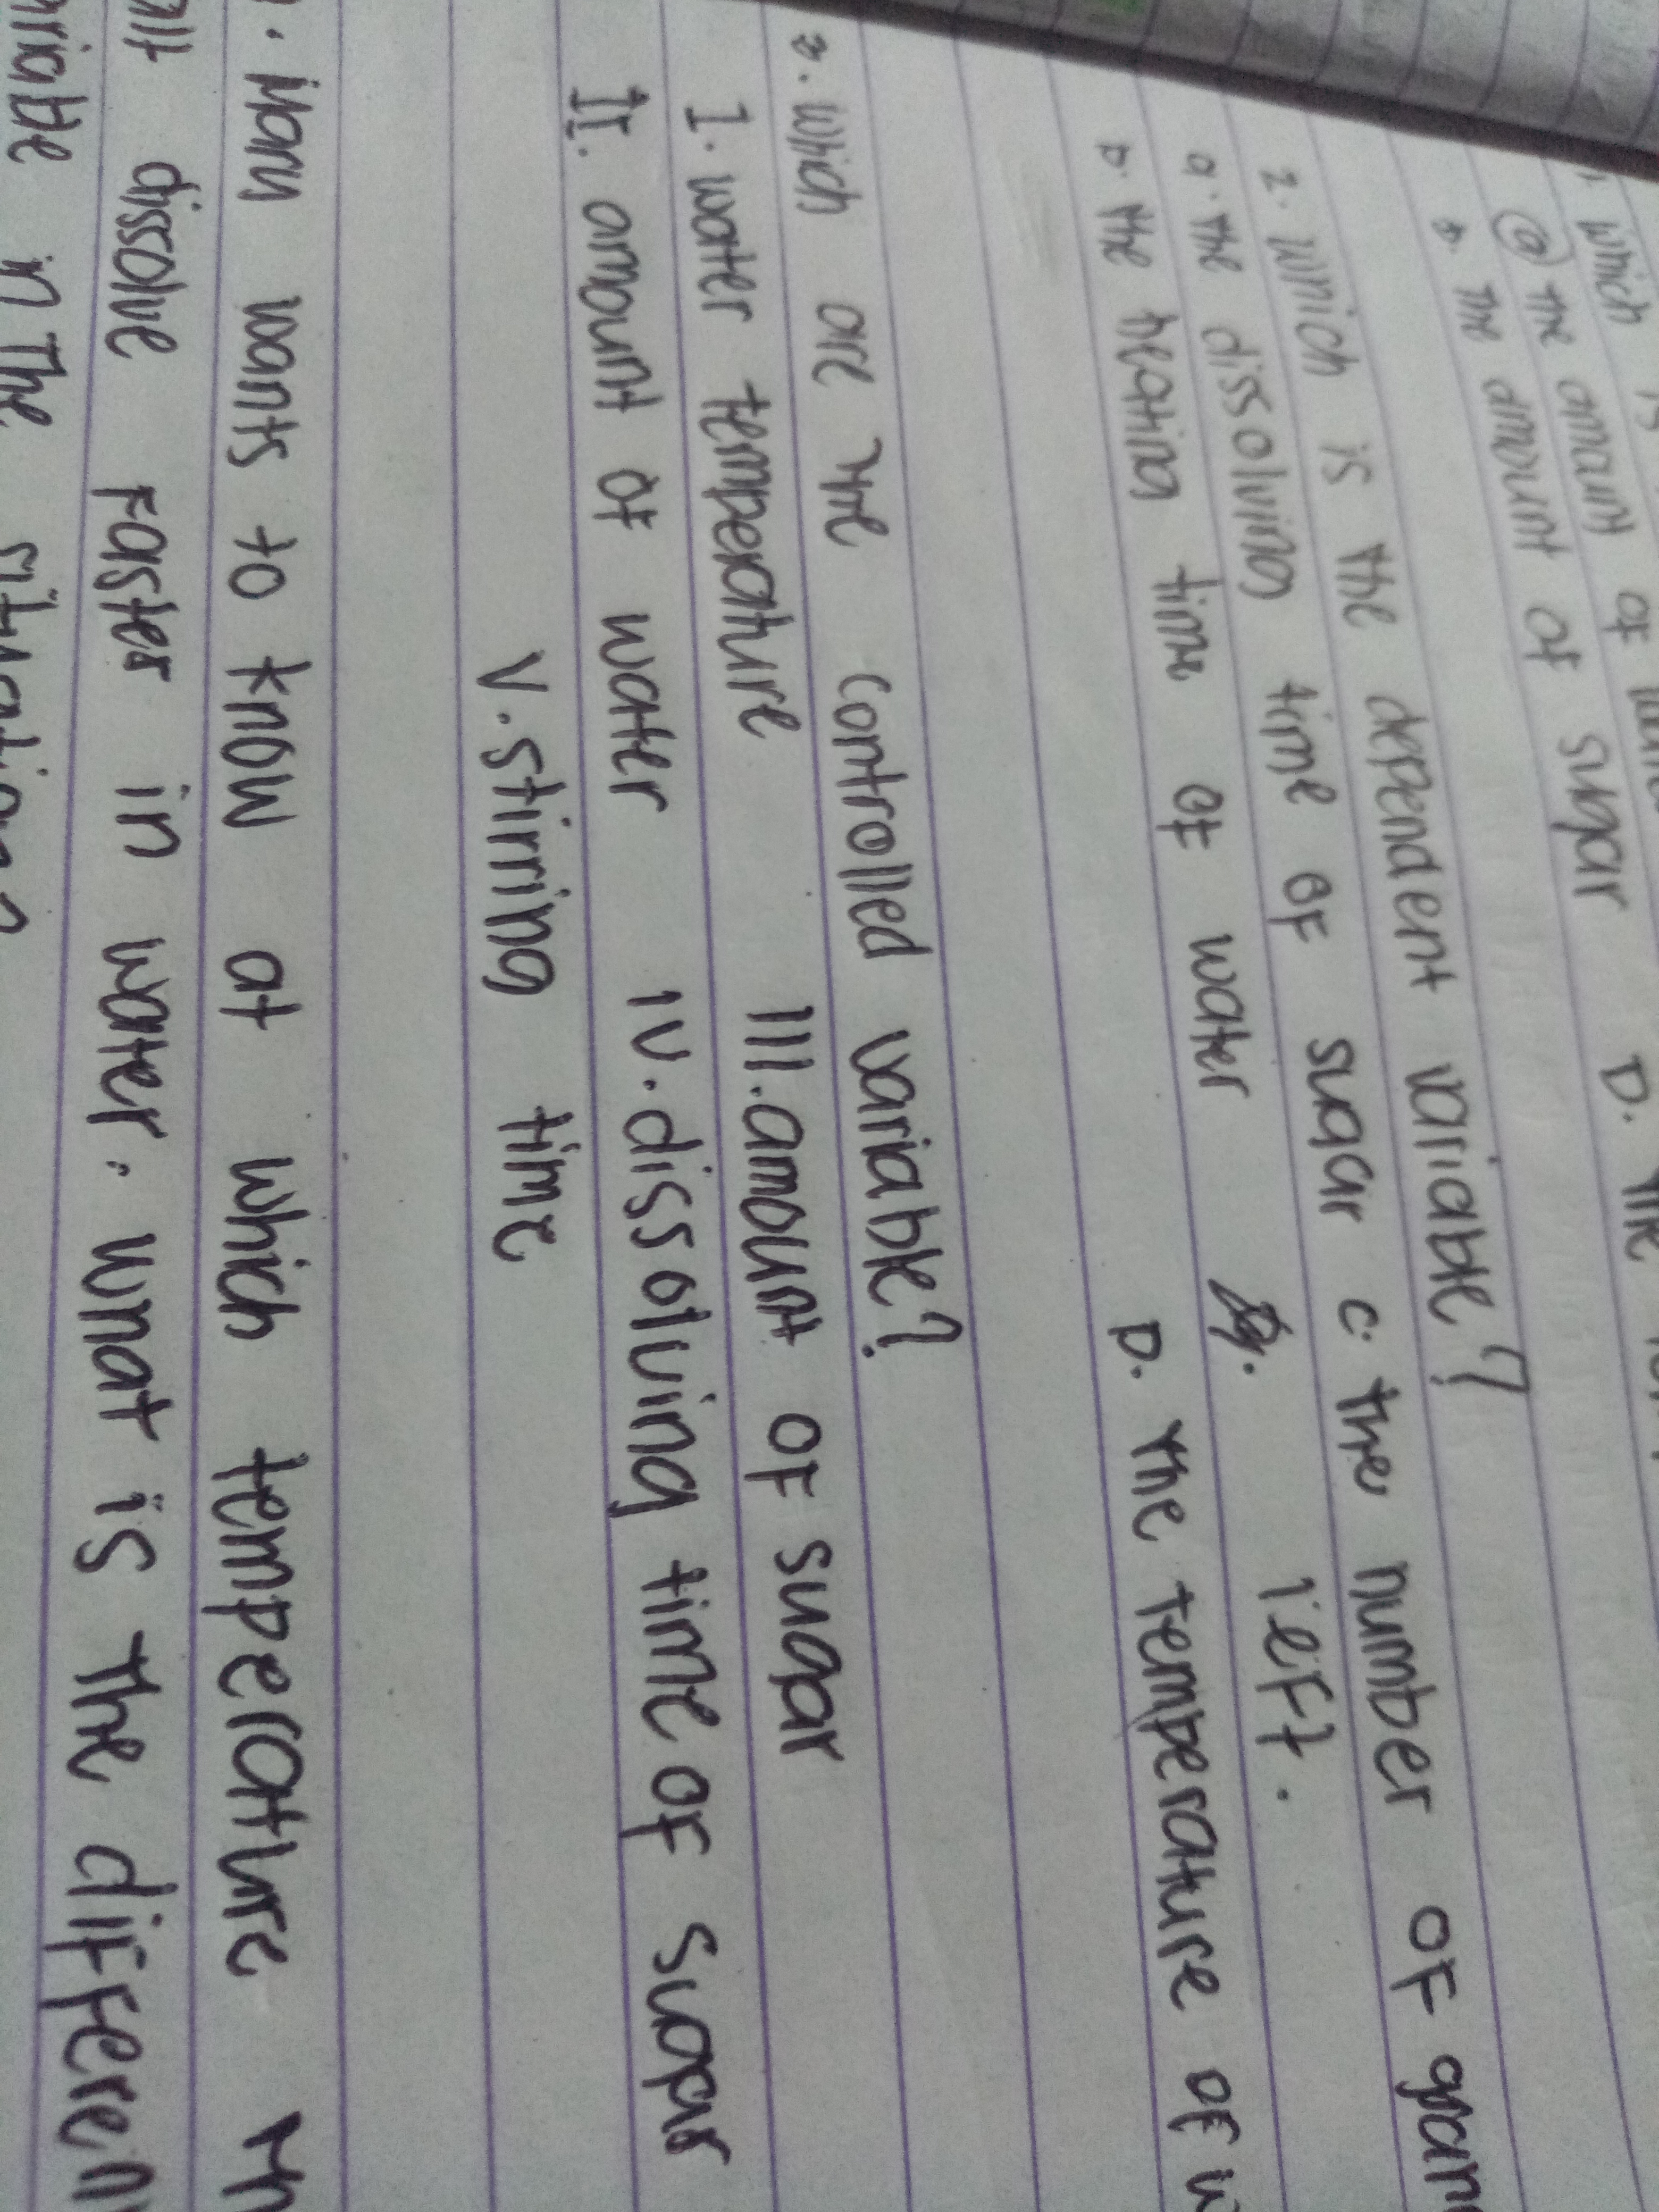 1. Which is
@ the amount of D. The
b. the amount of sugar
2. which is the dependent variable?
a. the dissolving time of sugar c. the number of gran
left.
b. the heating time of water D. The temperature of w
3. Which are the controlled variable?
I. water temperature III. amount of sugar
II. amount of water IV. dissolving time of sugar
V. stirring time
. Mary wants to know at which temperature th
alt dissolve faster in water. What is the differen
in the situation?